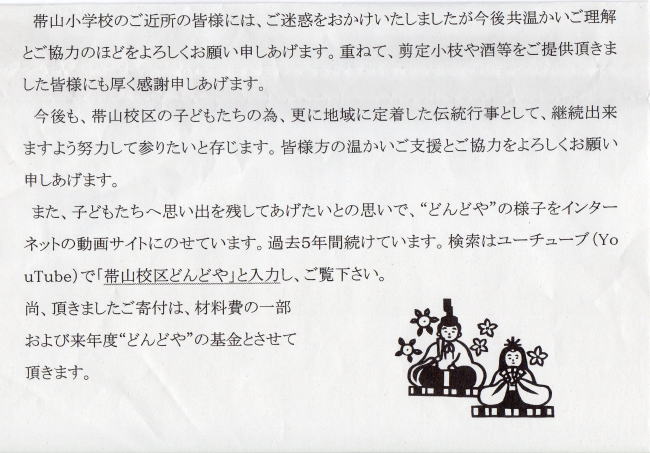 帯山小学校のご近所の皆様には、ご迷惑をおかけいたしましたが今後共温かいご理解
とご協力のほどをよろしくお願い申しあげます。重ねて、剪定小枝や酒等をご提供頂きま
した皆様にも厚く感謝申しあげます。
今後も、帯山校区の子どもたちの為、更に地域に定着した伝統行事として、継続出来
ますよう努力して参りたいと存じます。皆様方の温かいご支援とご協力をよろしくお願い
申しあげます。
また、子どもたちへ思い出を残してあげたいとの思いで、“どんどや”の様子をインター
ネットの動画サイトにのせています。過去5年間続けています。検索はユーチューブ(Yo
uTube)で「帯山校区どんどや」と入力し、ご覧下さい。
尚、頂きましたご寄付は、材料費の一部
および来年度“どんどや”の基金とさせて
頂きます。